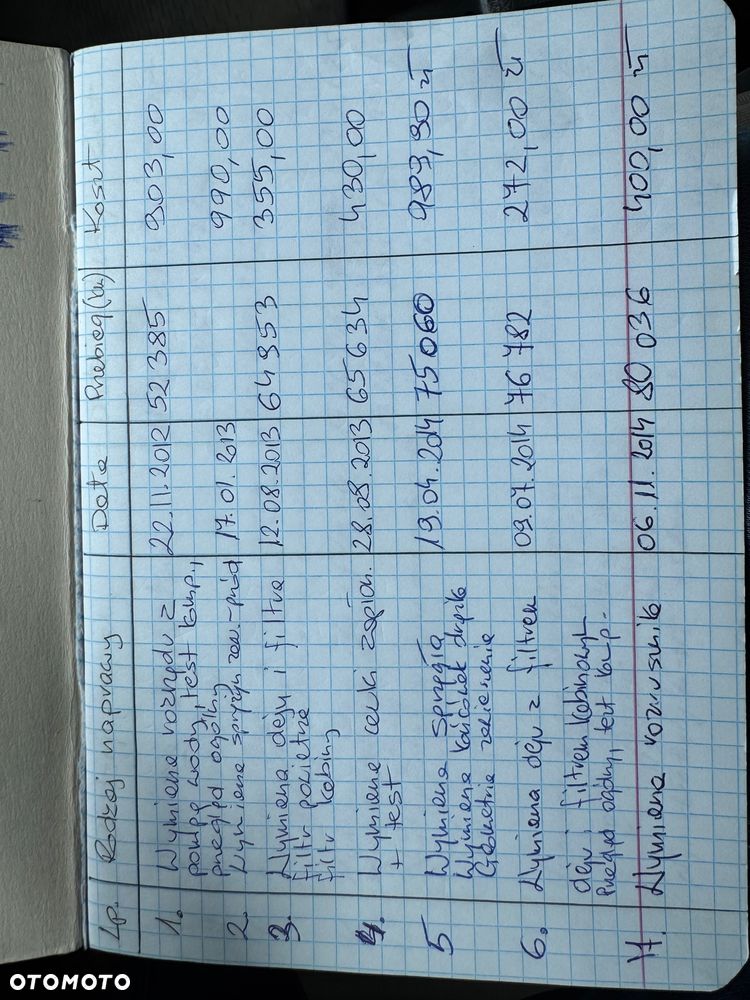 Lp. Rodzaj naprawy Data Przebieg (km) Koszt
1. Wymiana rozrządu z 22.11.2012 52 385 903,00
pompą wody, test komp.,
przegląd ogólny
2. Wymiana sprężyn zaw.-przód 17.01.2013 990,00
3. Wymiana oleju i filtra 12.08.2013 64 953 355,00
filtr powietrza
filtr kabiny
4. Wymiana cewki zapłon. 28.09.2013 65 634 430,00
+ test
5 Wymiana sprzęgła 19.04.2014 75 060 989,90 zł
Wymiana końcówek drążka
Geometria zawieszenia
6. Wymiana oleju z filtrem 09.07.2014 76 782 272,00 zł
oleju, filtrem kabinowym
Przegląd ogólny, test komp.
7. Wymiana rozrusznika 06.11.2014 80 036 400,00 zł
OTOMOTO